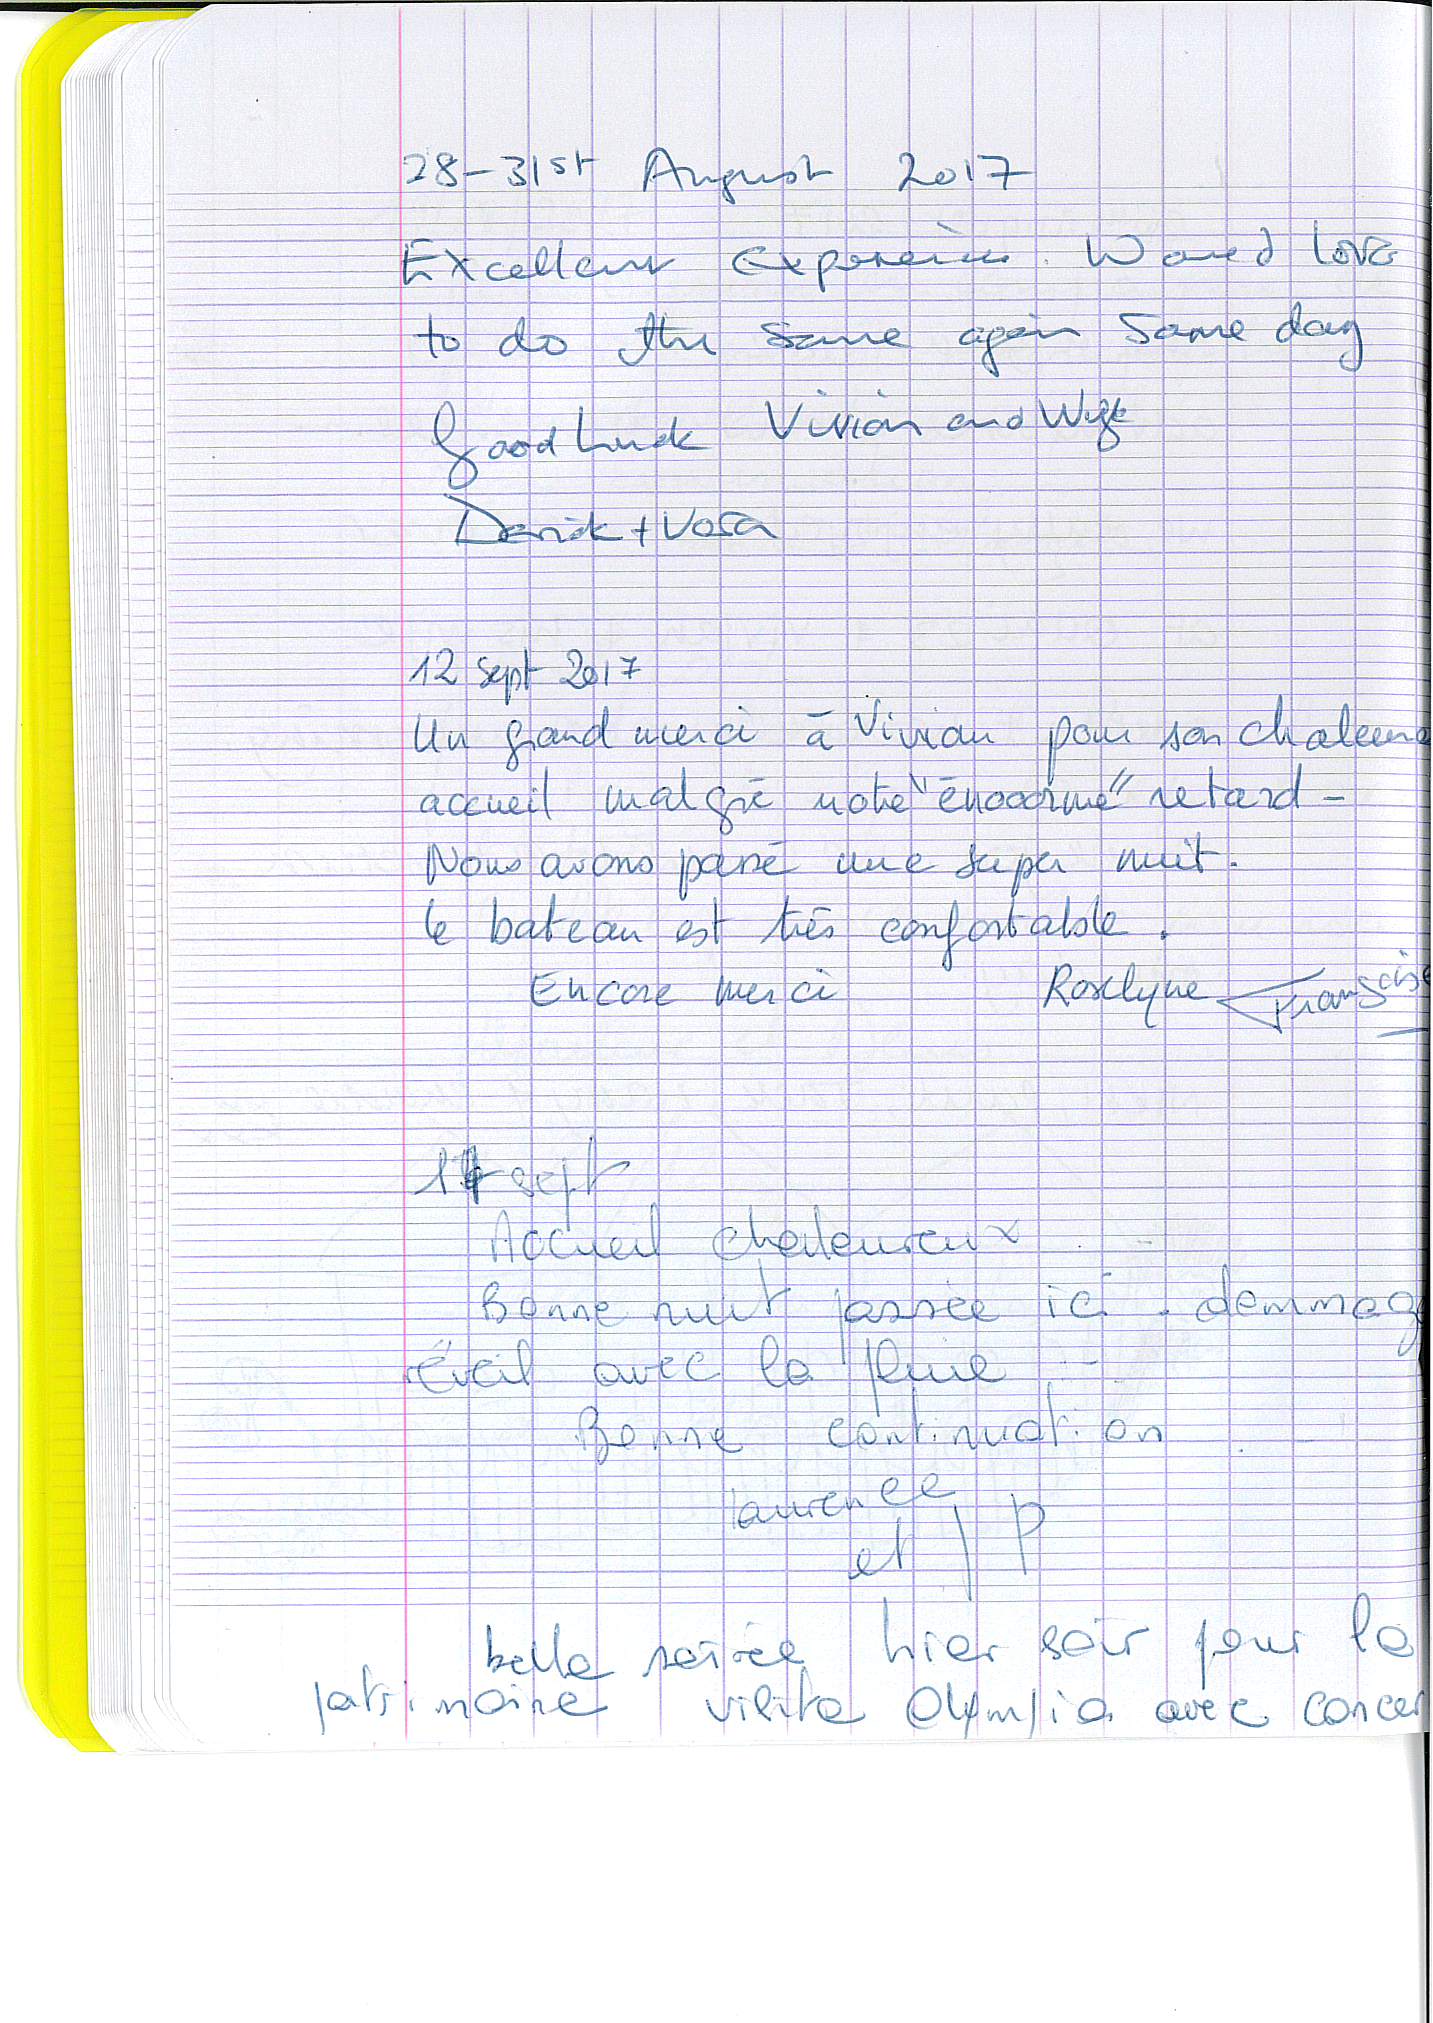 28-31st August 2017
Excellent experience. Would love
to do the same again some day
Good Luck Vivian and Wife
Derick +
12 sept 2017
Un grand merci à Vivian pour son chaleure
accueil malgré notre "énooorme" retard -
Nous avons passé une super nuit.
le bateau est très confortable.
Encore merci Roselyne Françoise
sept
Accueil chaleureux
Bonne nuit passée ici. dommag
réveil avec la pluie
Bonne continuation
laurence
et JP
belle soirée hier soir pour le
patrimoine visite Olympia avec concer